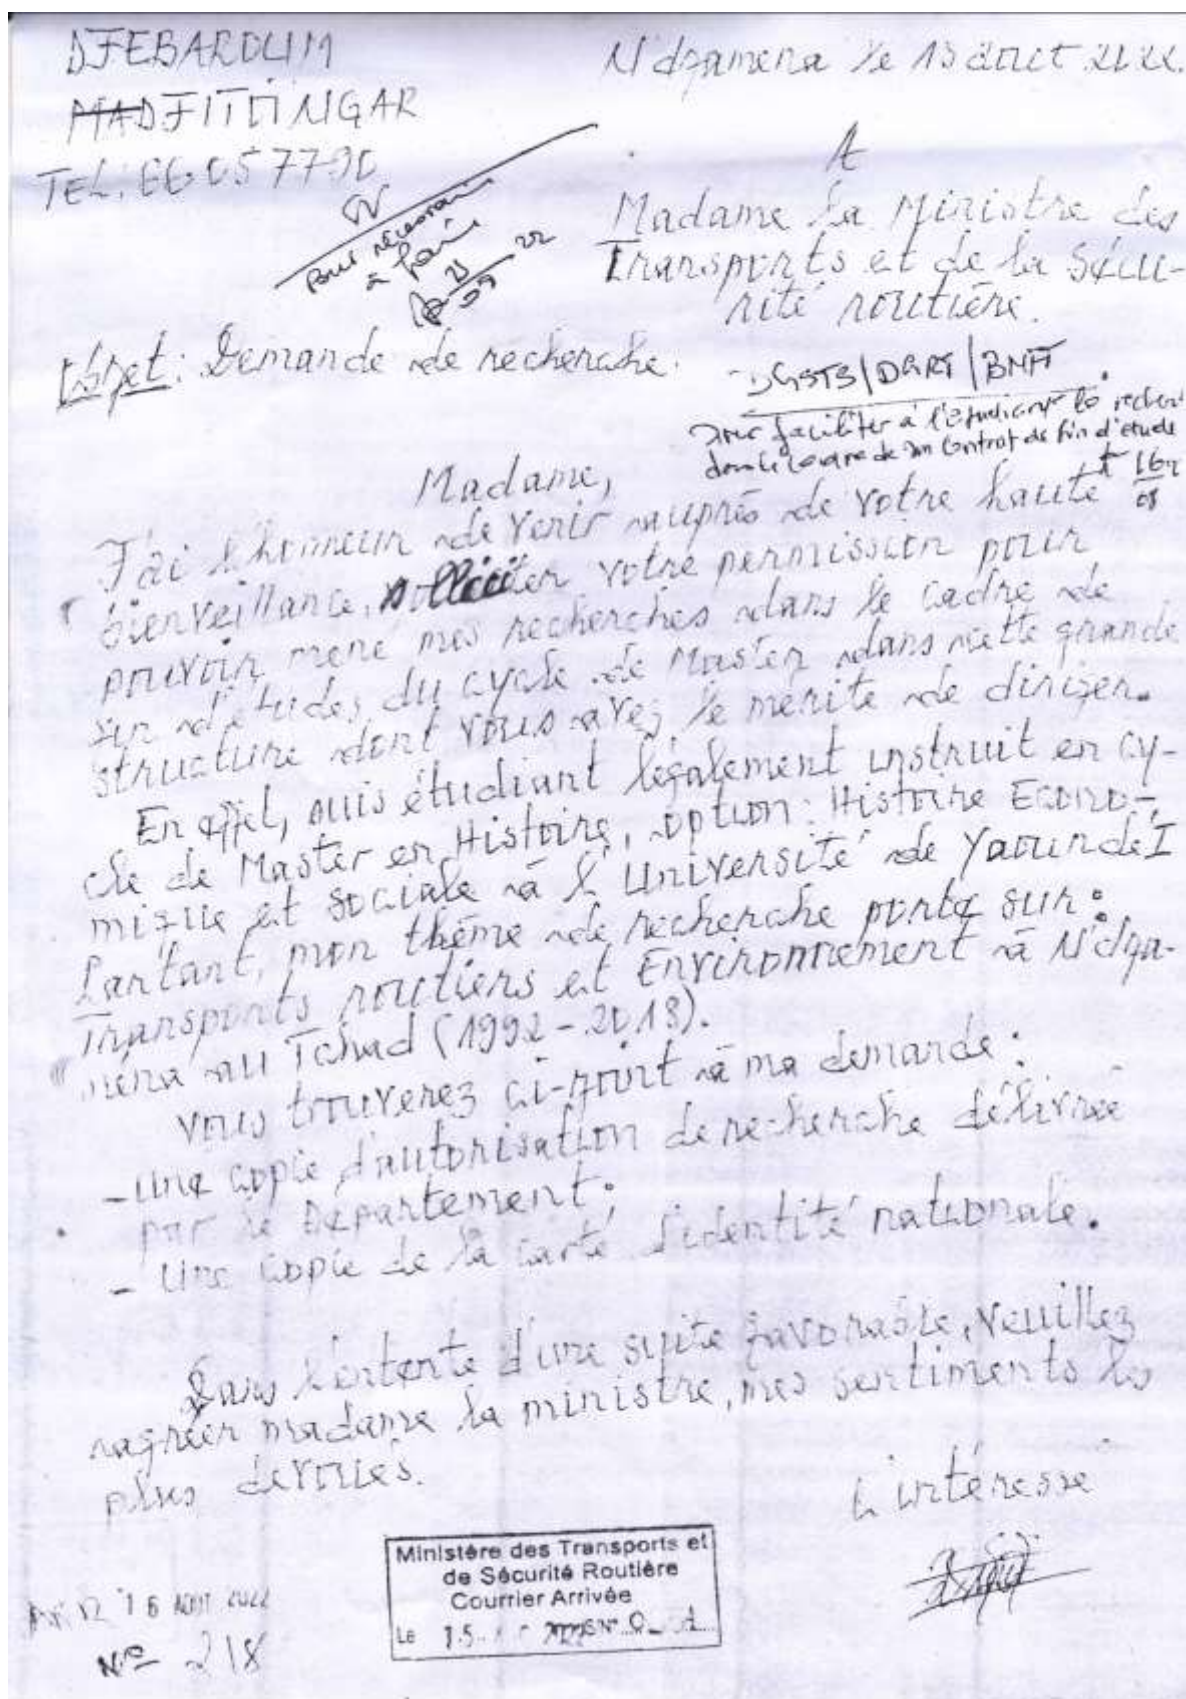 DJEBARDUM
MADJITOINGAR
TEL: 66 05 77 90
N'djamena le 13 août 2022.
A
Madame la Ministre des
Transports et de la Sécu-
rité routière.
Pour nécessaire
à faire
21
09 22
Objet: Demande de recherche.
DGSTB/DGRT/BNFT
pour faciliter à l'étudiant la recher
dans le cadre de son Contrat de fin d'étude
16
08
Madame,
J'ai l'honneur de venir auprès de votre haute
bienveillance, solliciter votre permission pour
pouvoir mené mes recherches dans le cadre de
fin d'études du cycle de Master dans cette grande
structure dont vous avez le mérite de diriger.
En effet, suis étudiant légalement instruit en cy-
cle de Master en Histoire, option: Histoire Econo-
mique et sociale à l'Université de Yaoundé I
Partant, mon thème de recherche porte sur:
Transports routiers et Environnement à N'dja-
ména au Tchad (1992-2018).
Vous trouverez ci-joint à ma demande:
- Une copie d'autorisation de recherche délivrée
par le Département;
- Une copie de la carte d'identité nationale.
Dans l'entente d'une suite favorable, veuillez
agréer madame la ministre, mes sentiments les
plus dévoués.
L'intéresse
Ministère des Transports et
de Sécurité Routière
Courrier Arrivée
Le 15
16 AOUT 2022
N° 218